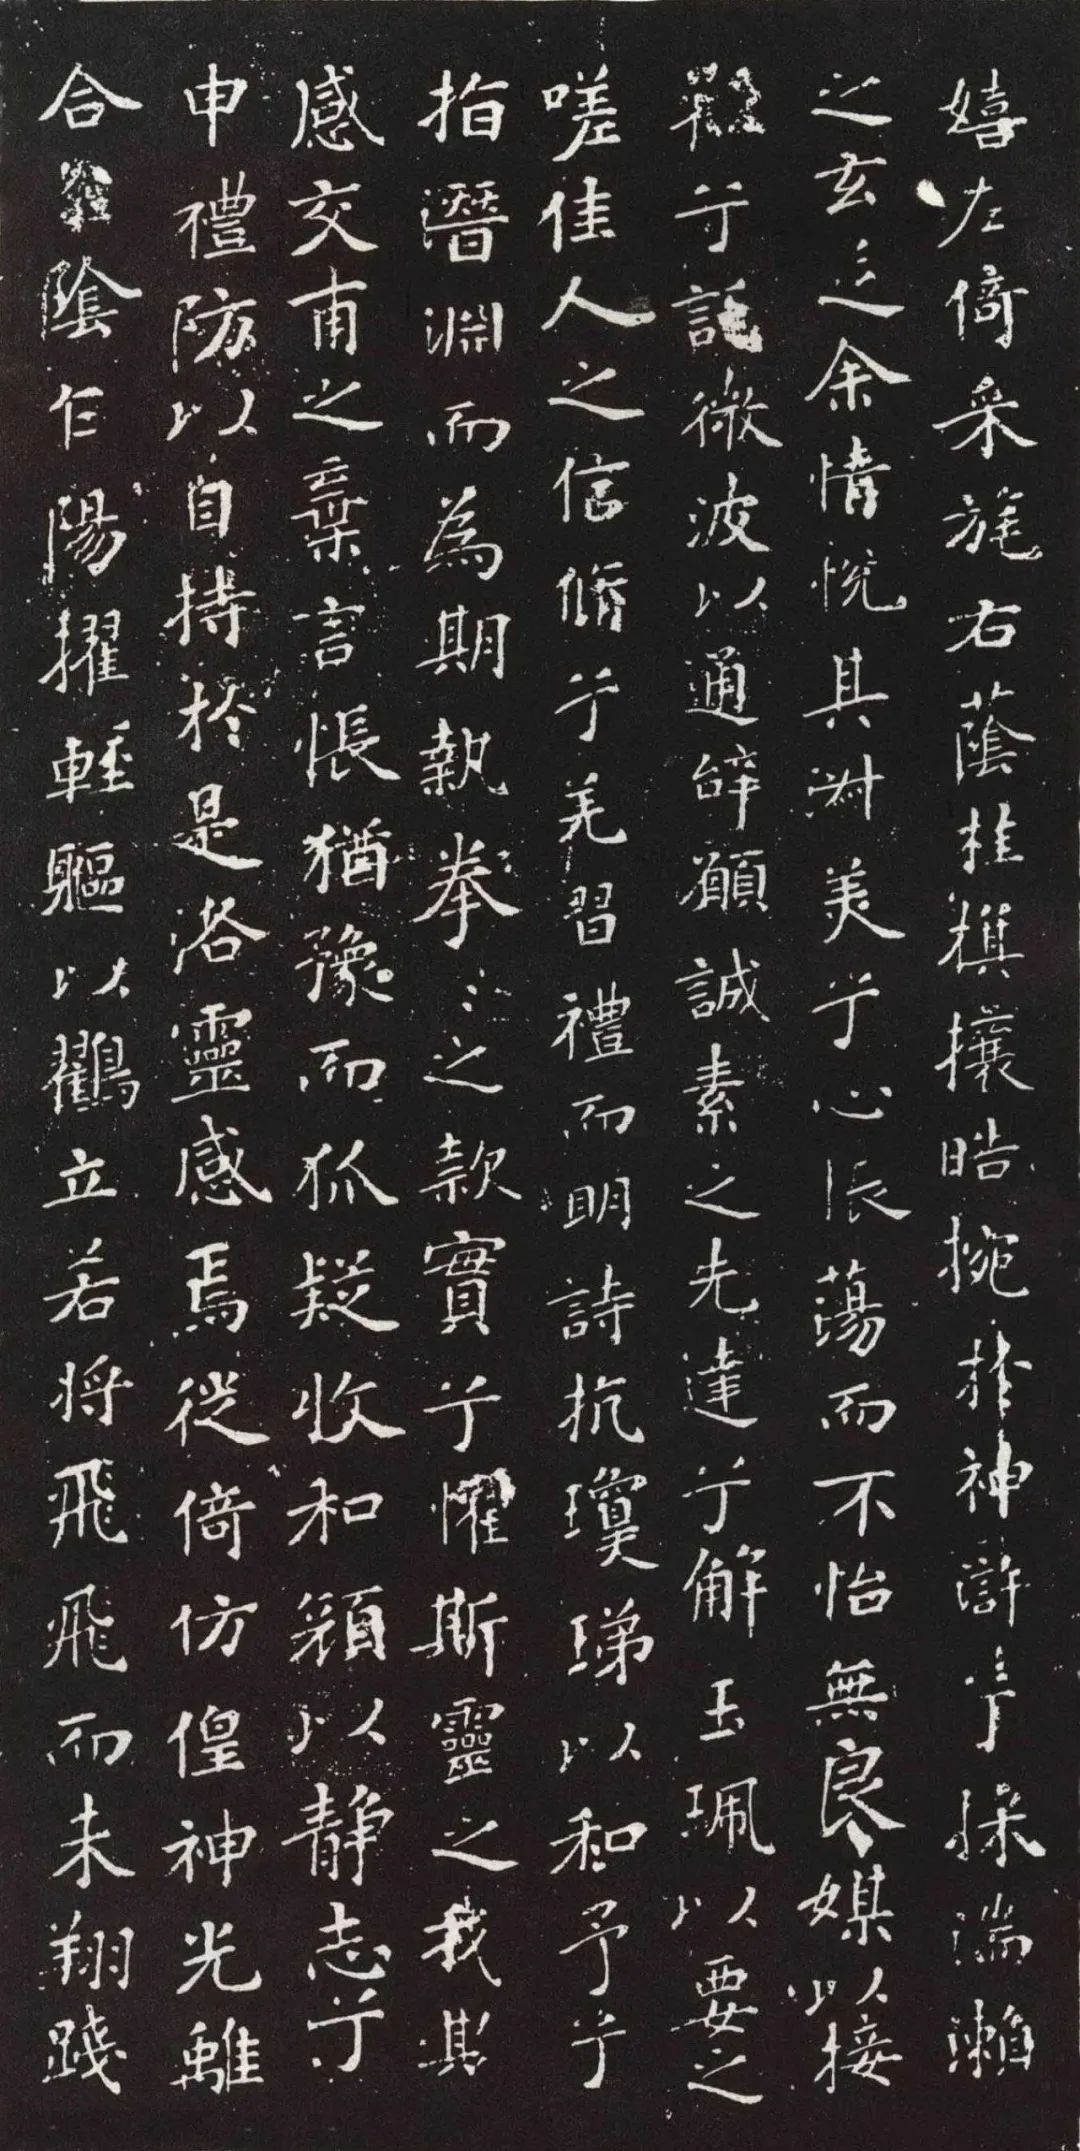 嬉左倚采旄右蔭桂旗攘皓捥於神滸兮採湍瀨
之玄芝余情悅其淑美兮心振蕩而不怡無良媒以接
兮託微波以通辭願誠素之先達兮解玉珮以要之
嗟佳人之信脩兮羌習禮而明詩抗瓊珶以和予兮
指潛淵而為期執拳〻之款實兮懼斯靈之我欺
感交甫之棄言悵猶豫而狐疑收和顏以靜志兮
申禮防以自持於是洛靈感焉徙倚仿偟神光離
合陰乍陽擢輕軀以鶴立若將飛飛而未翔踐